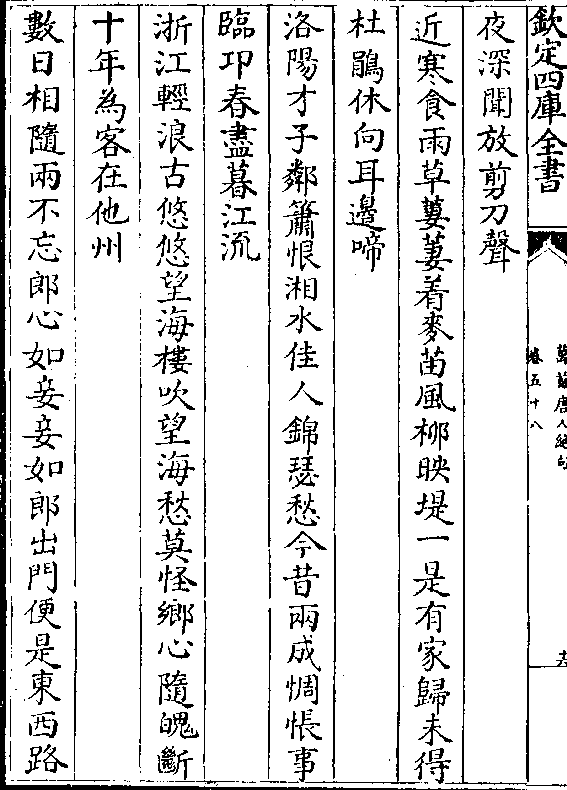 欽定四庫全書
萬首唐人絕句
卷五十八
夜深聞放剪刀聲
近寒食雨草萋萋着麥苗風栁映堤一是有家歸未得
杜鵑休向耳邊啼
洛陽才子鄰簫恨湘水佳人錦瑟愁今昔兩成惆悵事
臨卭春盡暮江流
浙江輕浪古悠悠望海樓吹望海愁莫怪鄉心隨魄斷
十年為客在他州
數日相隨兩不忘郎心如妾妾如郎出門便是東西路